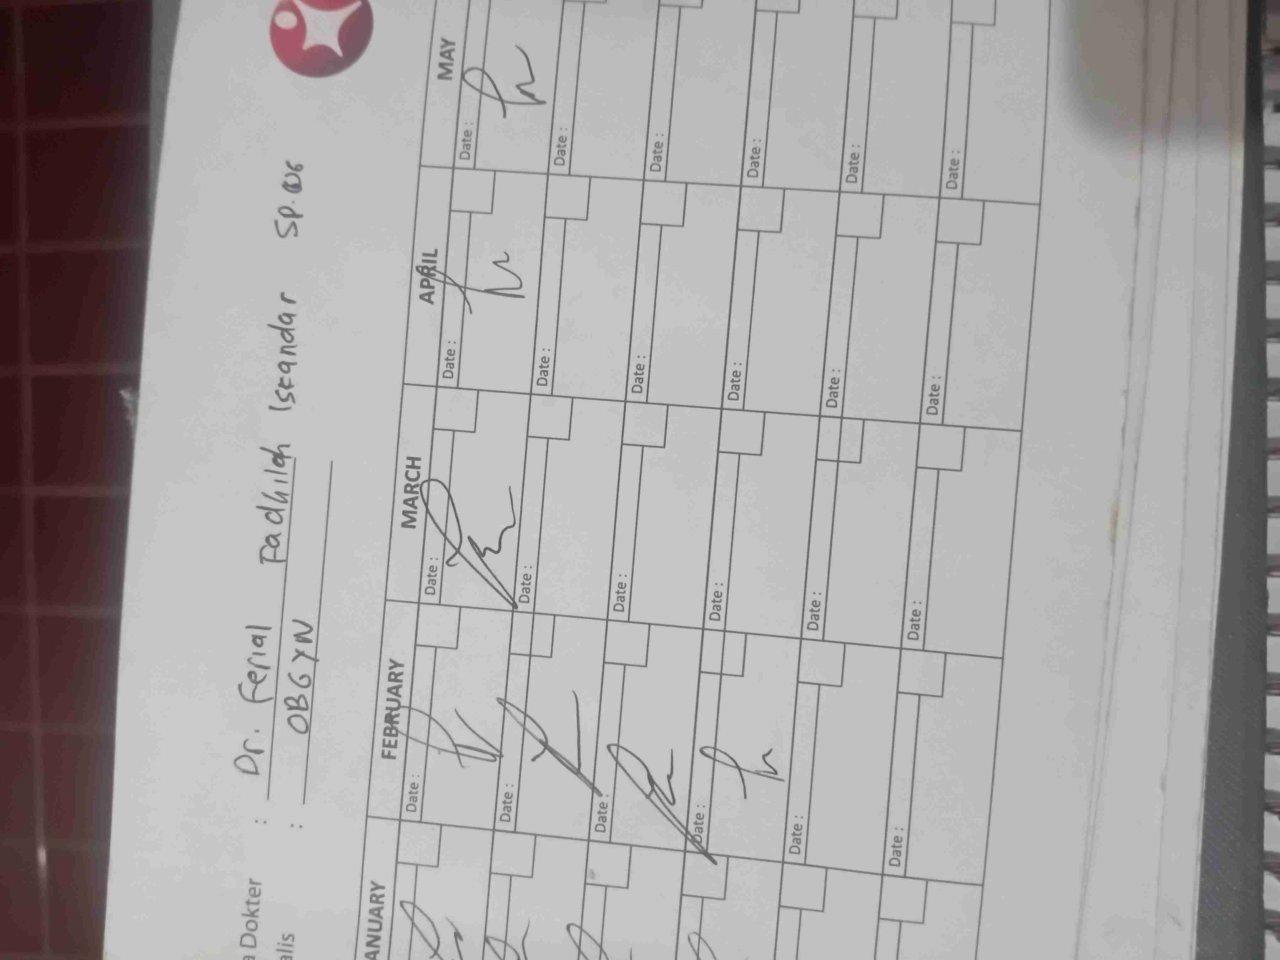 Dokter : Dr. Ferial Fadhilah Iskandar Sp.OG
alis : OBGYN
ANUARY FEBRUARY MARCH APRIL MAY
Date : Date : Date : Date :
Date : Date : Date : Date :
Date : Date : Date : Date :
Date : Date : Date : Date :
Date : Date : Date : Date :
Date : Date : Date : Date :